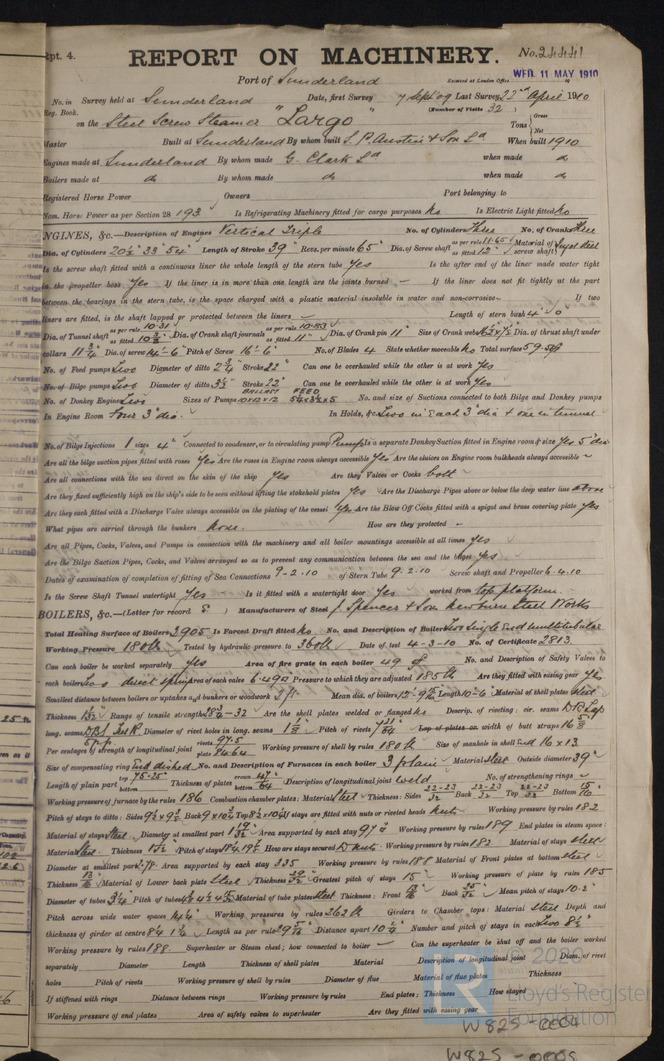 Rpt. 4.
REPORT ON MACHINERY.
No. 24441
Port of Sunderland
Received at London Office WED. 11 MAY 1910
No. in Survey held at Sunderland Date, first Survey 7 Sept 09 Last Survey 22nd April 1910
Reg. Book. (Number of Visits 32)
on the Steel Screw Steamer "Largo" Tons Gross Net
Master Built at Sunderland By whom built S. P. Austin & Son Ld When built 1910
Engines made at Sunderland By whom made G. Clark Ld when made do
Boilers made at do By whom made do when made do
Registered Horse Power Owners Port belonging to
Nom. Horse Power as per Section 28 193 Is Refrigerating Machinery fitted for cargo purposes No Is Electric Light fitted No
ENGINES, &c.—Description of Engines Vertical Triple No. of Cylinders Three No. of Cranks Three
Dia. of Cylinders 20½" 33" 54" Length of Stroke 39" Revs. per minute 65 Dia. of Screw shaft as per rule 11.65 as fitted 12" Material of screw shaft Ingot steel
Is the screw shaft fitted with a continuous liner the whole length of the stern tube Yes Is the after end of the liner made water tight
in the propeller boss Yes If the liner is in more than one length are the joints burned — If the liner does not fit tightly at the part
between the bearings in the stern tube, is the space charged with a plastic material insoluble in water and non-corrosive — If two
liners are fitted, is the shaft lapped or protected between the liners — Length of stern bush 4' 0
Dia. of Tunnel shaft as per rule 10.31 as fitted Dia. of Crank shaft journals as per rule as fitted 11" Dia. of Crank pin 11" Size of Crank webs Dia. of thrust shaft under
collars 11¾ Dia. of screw 14'-6 Pitch of Screw 16'-6" No. of Blades 4 State whether moveable No Total surface 59.5
No. of Feed pumps Two Diameter of ditto 2¾ Stroke 22" Can one be overhauled while the other is at work Yes
No. of Bilge pumps Two Diameter of ditto 3½ Stroke 22" Can one be overhauled while the other is at work Yes
No. of Donkey Engines Two Sizes of Pumps BALLAST 10x12x12 FEED No. and size of Suctions connected to both Bilge and Donkey pumps
In Engine Room Four 3" dia. In Holds, &c. Two in each 3" dia & one in tunnel
No. of Bilge Injections 1 sizes 4" Connected to condenser, or to circulating pump Pump Is a separate Donkey Suction fitted in Engine room & size Yes 5" dia
Are all the bilge suction pipes fitted with roses Yes Are the roses in Engine room always accessible Yes Are the sluices on Engine room bulkheads always accessible —
Are all connections with the sea direct on the skin of the ship Yes Are they Valves or Cocks both
Are they fixed sufficiently high on the ship's side to be seen without lifting the stokehold plates Yes Are the Discharge Pipes above or below the deep water line above
Are they each fitted with a Discharge Valve always accessible on the plating of the vessel Yes Are the Blow Off Cocks fitted with a spigot and brass covering plate Yes
What pipes are carried through the bunkers None. How are they protected —
Are all Pipes, Cocks, Valves, and Pumps in connection with the machinery and all boiler mountings accessible at all times Yes
Are the Bilge Suction Pipes, Cocks, and Valves arranged so as to prevent any communication between the sea and the bilges Yes
Dates of examination of completion of fitting of Sea Connections 9-2-10 of Stern Tube 9.2.10 Screw shaft and Propeller 6.4.10
Is the Screw Shaft Tunnel watertight Yes Is it fitted with a watertight door Yes worked from top platform
BOILERS, &c.—(Letter for record S ) Manufacturers of Steel J. Spencer & Son Newburn Steel Works
Total Heating Surface of Boilers 2905 Is Forced Draft fitted No No. and Description of Boilers Two Single End multitubular
Working Pressure 180 lb Tested by hydraulic pressure to 360 lb Date of test 4-3-10 No. of Certificate 2813
Can each boiler be worked separately Yes Area of fire grate in each boiler 49 No. and Description of Safety Valves to
each boiler Two direct spring Area of each valve 6.49 Pressure to which they are adjusted 185 lb Are they fitted with easing gear Yes
Smallest distance between boilers or uptakes and bunkers or woodwork Mean dia. of boilers Length 10-6 Material of shell plates Steel
Thickness Range of tensile strength 28¾-32 Are the shell plates welded or flanged No Descrip. of riveting: cir. seams D R Lap
long. seams Diameter of rivet holes in long. seams Pitch of rivets Top of plates or width of butt straps
Per centages of strength of longitudinal joint rivets 97.5 plate 84.64 Working pressure of shell by rules 180 lb Size of manhole in shell End 16 x 13
Size of compensating ring End dished No. and Description of Furnaces in each boiler 3 plain Material Steel Outside diameter 39"
Length of plain part top 75.25" bottom Thickness of plates crown bottom Description of longitudinal joint weld No. of strengthening rings —
Working pressure of furnace by the rules 186 Combustion chamber plates: Material Steel Thickness: Sides Back Top Bottom
Pitch of stays to ditto: Sides Back Top If stays are fitted with nuts or riveted heads Nuts Working pressure by rules 182
Material of stays Steel Diameter at smallest part Area supported by each stay 97" Working pressure by rules 189 End plates in steam space:
Material Steel Thickness Pitch of stays How are stays secured D Nuts Working pressure by rules 182 Material of stays Steel
Diameter at smallest part Area supported by each stay 335 Working pressure by rules 188 Material of Front plates at bottom Steel
Thickness Material of Lower back plate Steel Thickness Greatest pitch of stays 15" Working pressure of plate by rules 185
Diameter of tubes 3¼ Pitch of tubes Material of tube plates Steel Thickness: Front Back Mean pitch of stays 10.2"
Pitch across wide water spaces 14¼" Working pressures by rules 262 lb Girders to Chamber tops: Material Steel Depth and
thickness of girder at centre Length as per rule Distance apart Number and pitch of stays in each Two 8½"
Working pressure by rules 188 Superheater or Steam chest; how connected to boiler — Can the superheater be shut off and the boiler worked
separately Diameter Length Thickness of shell plates Material Description of longitudinal joint Diam. of rivet
holes Pitch of rivets Working pressure of shell by rules Diameter of flue Material of flue plates Thickness
If stiffened with rings Distance between rings Working pressure by rules End plates: Thickness How stayed
Working pressure of end plates Area of safety valves to superheater Are they fitted with easing gear
© 2020
Lloyd's Register
Foundation
W825-0004
W825-0004